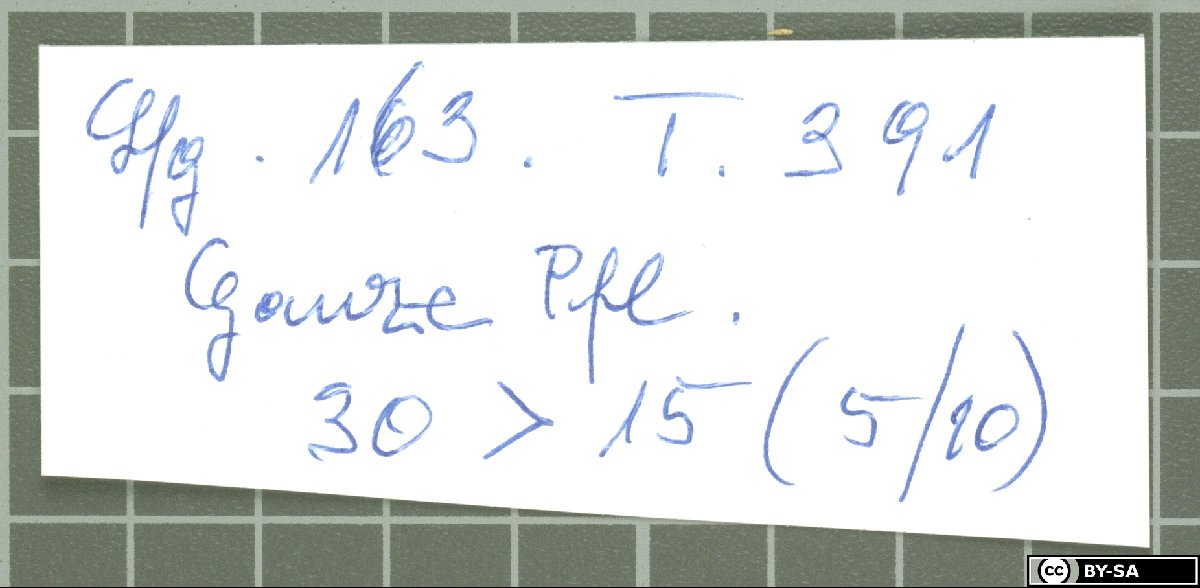 Hg. 163. T. 391
Ganze Pfl.
30 > 15 (5/10)
cc BY-SA